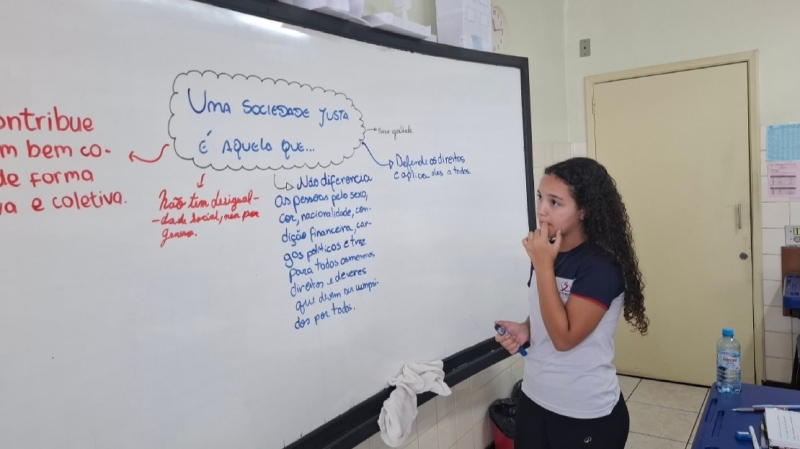 ontribue
m bem co-
de forma
va e coletiva.
Uma sociedade justa
é aquela que...
Não tem desigual-
-dade social, nem por
genero.
Não diferencia
as pessoas pelo sexo,
cor, nacionalidade, con-
dição financeira, car-
gos políticos e traz
para todos os mesmos
direitos e deveres
que devem ser cumpri-
dos por todos.
Defende os direitos
e aplica-os a todos.